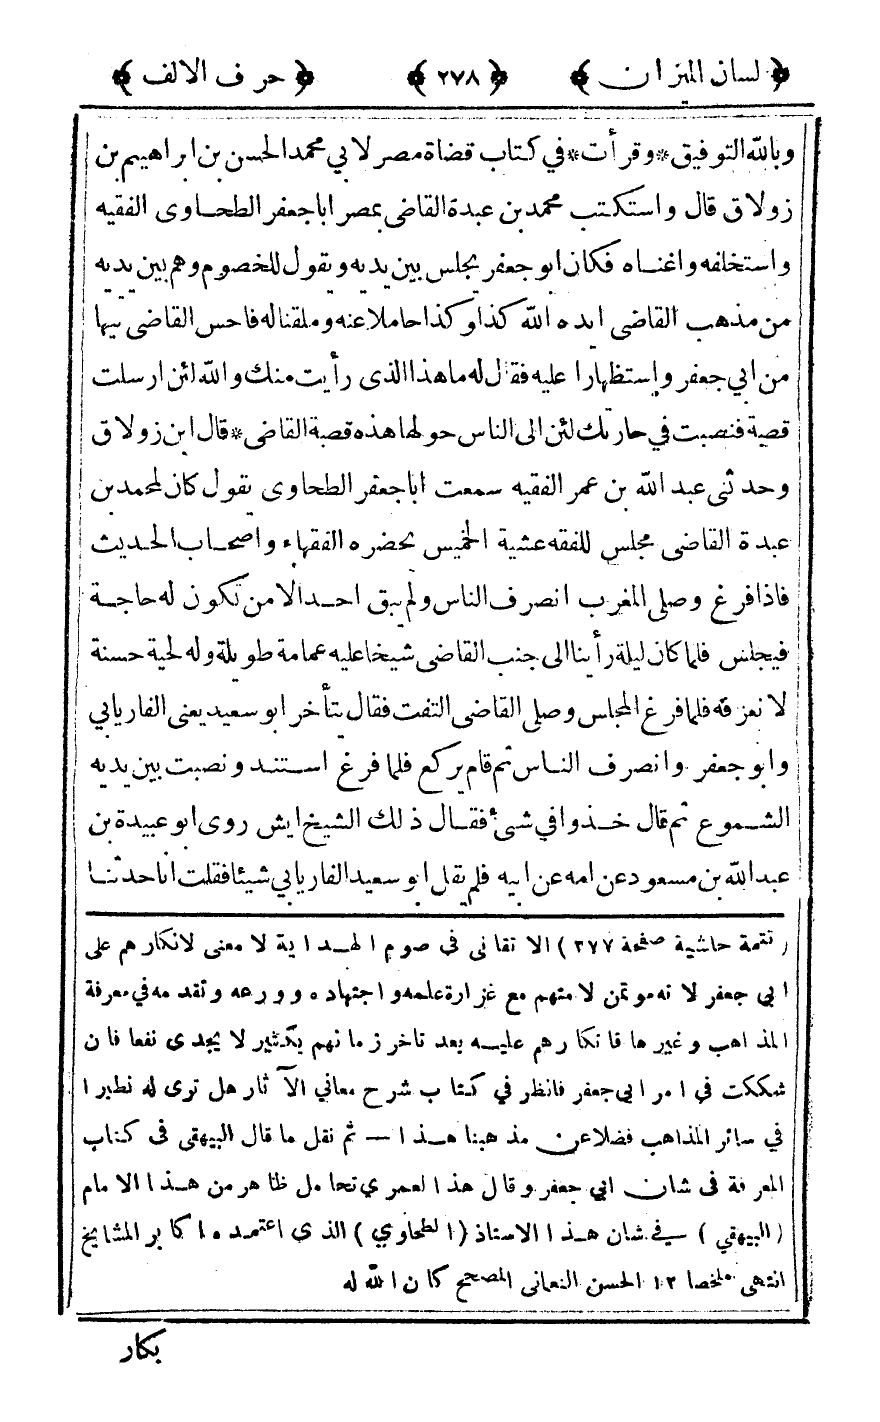 ﴿ لسان الميزان ﴾ ﴿ ٢٧٨ ﴾ ﴿ حرف الالف ﴾
وبالله التوفيق*وقرأت*في كتاب قضاة مصر لابي محمد الحسن بن ابراهيم بن
زولاق قال واستكتب محمد بن عبدة القاضى بمصر اباجعفر الطحاوى الفقيه
واستخلفه واغناه فكان ابو جعفر يجلس بين يديه ويقول للخصوم وهم بين يديه
من مذهب القاضى ايده الله كذا وكذا حاملا عنه وملقنا له فاحس القاضى تيها
من ابي جعفر وإستظهارا عليه فقال له ماهذا الذى رأيت منك والله لئن ارسلت
قصبة فنصبت في حارتك لئن الى الناس حولها هذه قصبة القاضى*قال ابن زولاق
وحدثنى عبد الله بن عمر الفقيه سمعت اباجعفر الطحاوى يقول كان لمحمد بن
عبدة القاضى مجلس للفقه عشية الخميس يحضره الفقهاء واصحاب الحديث
فاذا فرغ وصلى المغرب انصرف الناس ولم يبق احد الا من تكون له حاجة
فيجلس فلما كان ليلة رأينا الى جنب القاضى شيخا عليه عمامة طويلة وله لحية حسنة
لا نعرفه فلما فرغ المجلس وصلى القاضى التفت فقال يتأخر ابو سعيد يعنى الفاريابي
وابو جعفر وانصرف الناس ثم قام يركع فلما فرغ استند ونصبت بين يديه
الشموع ثم قال خذوا في شئ فقال ذلك الشيخ ايش روى ابو عبيدة بن
عبد الله بن مسعود عن امه عن ابيه فلم يقل ابو سعيد الفاريابي شيئا فقلت انا حدثنا
(تتمة حاشية صفحة ٢٧٧) الاتقانى فى صوم الهداية لا معنى لانكارهم على
ابي جعفر لانه مؤتمن لا متهم مع غزارة علمه واجتهاده وورعه وتقدمه في معرفة
المذاهب وغيرها فانكارهم عليه بعد تاخر زمانهم بكثير لا يجدى نفعا فان
شككت في امر ابي جعفر فانظر في كتاب شرح معاني الآثار هل ترى له نظيرا
في سائر المذاهب فضلا عن مذهبنا هذا — ثم نقل ما قال البيهقى فى كتاب
المعرفة فى شان ابي جعفر وقال هذا لعمري تحامل ظاهر من هذا الامام
(البيهقي) في شان هذا الاستاذ (الطحاوي) الذى اعتمده اكابر المشايخ
انتهى ملخصا ١٢ الحسن النعمانى المصحح كان الله له
بكار